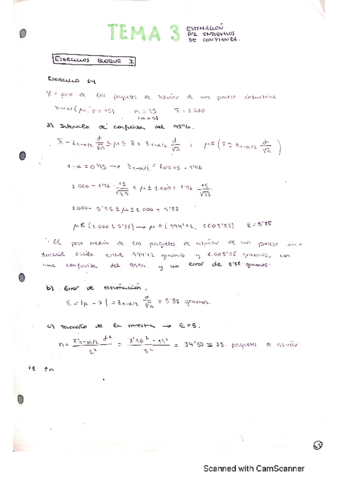 TEMA 3
ESTIMACIÓN
POR INTERVALOS
DE CONFIANZA.
EJERCICIOS BLOQUE 1
EJERCICIO 14
X = peso de los paquetes de azúcar de un proceso industrial
X → N(μ, σ = 15) n = 25 x̄ = 1.000
a) Intervalo de confianza del 95%.
x̄ - z1-α/2 σ/√n ≤ μ ≤ x̄ + z1-α/2 σ/√n ; μ∈(x̄ ± z1-α/2 σ/√n)
1-α = 0'95 → z1-α/2 = 1'96
1.000 - 1'96 · 15/√25 ≤ μ ≤ 1.000 + 1'96 · 15/√25
1.000 - 5'88 ≤ μ ≤ 1.000 + 5'88
μ∈(1.000 ± 5'88) → μ∈(994'12, 1.005'88) ε = 5'88
El peso medio de los paquetes de azúcar de un proceso in-
dustrial oscila entre 994'12 gramos y 1.005'88 gramos, con
una confianza del 95% y un error de 5'88 gramos.
b) Error de estimación.
ε = |μ - x̄| = z1-α/2 σ/√n = 5'88 gramos.
c) Tamaño de la muestra → ε = 5.
n = z²1-α/2 · σ² / ε² = 1'96² · 15² / 5² = 34'57 ≅ 35 paquetes de azúcar
↓ε ↑n
Scanned with CamScanner